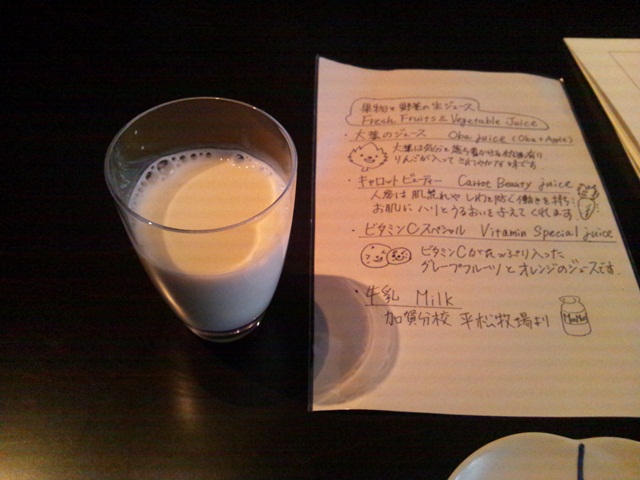 果物と野菜の生ジュース
Fresh Fruits & Vegetable Juice
・大葉のジュース Oba juice (Oba+Apple)
大葉は気分を落ち着かせる効果有り
りんごが入って さわやかな味です
・キャロットビューティー Carrot Beauty juice
人参は肌荒れや しわを防ぐ働きを持ち
お肌に ハリとうるおいを与えてくれます
・ビタミンCスペシャル Vitamin Special juice
ビタミンCがたっぷり入った
グレープフルーツとオレンジのジュースです。
・牛乳 Milk
加賀分校 平松牧場より